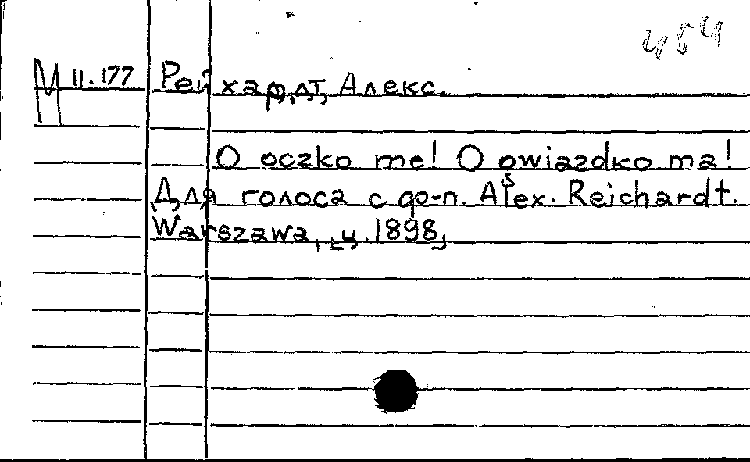 454
М II.177 Рейхардт, Алекс.
O oczko me! O gwiazdko ma!
Для голоса с ф-п. Alex. Reichardt.
Warszawa, ц. 1898,